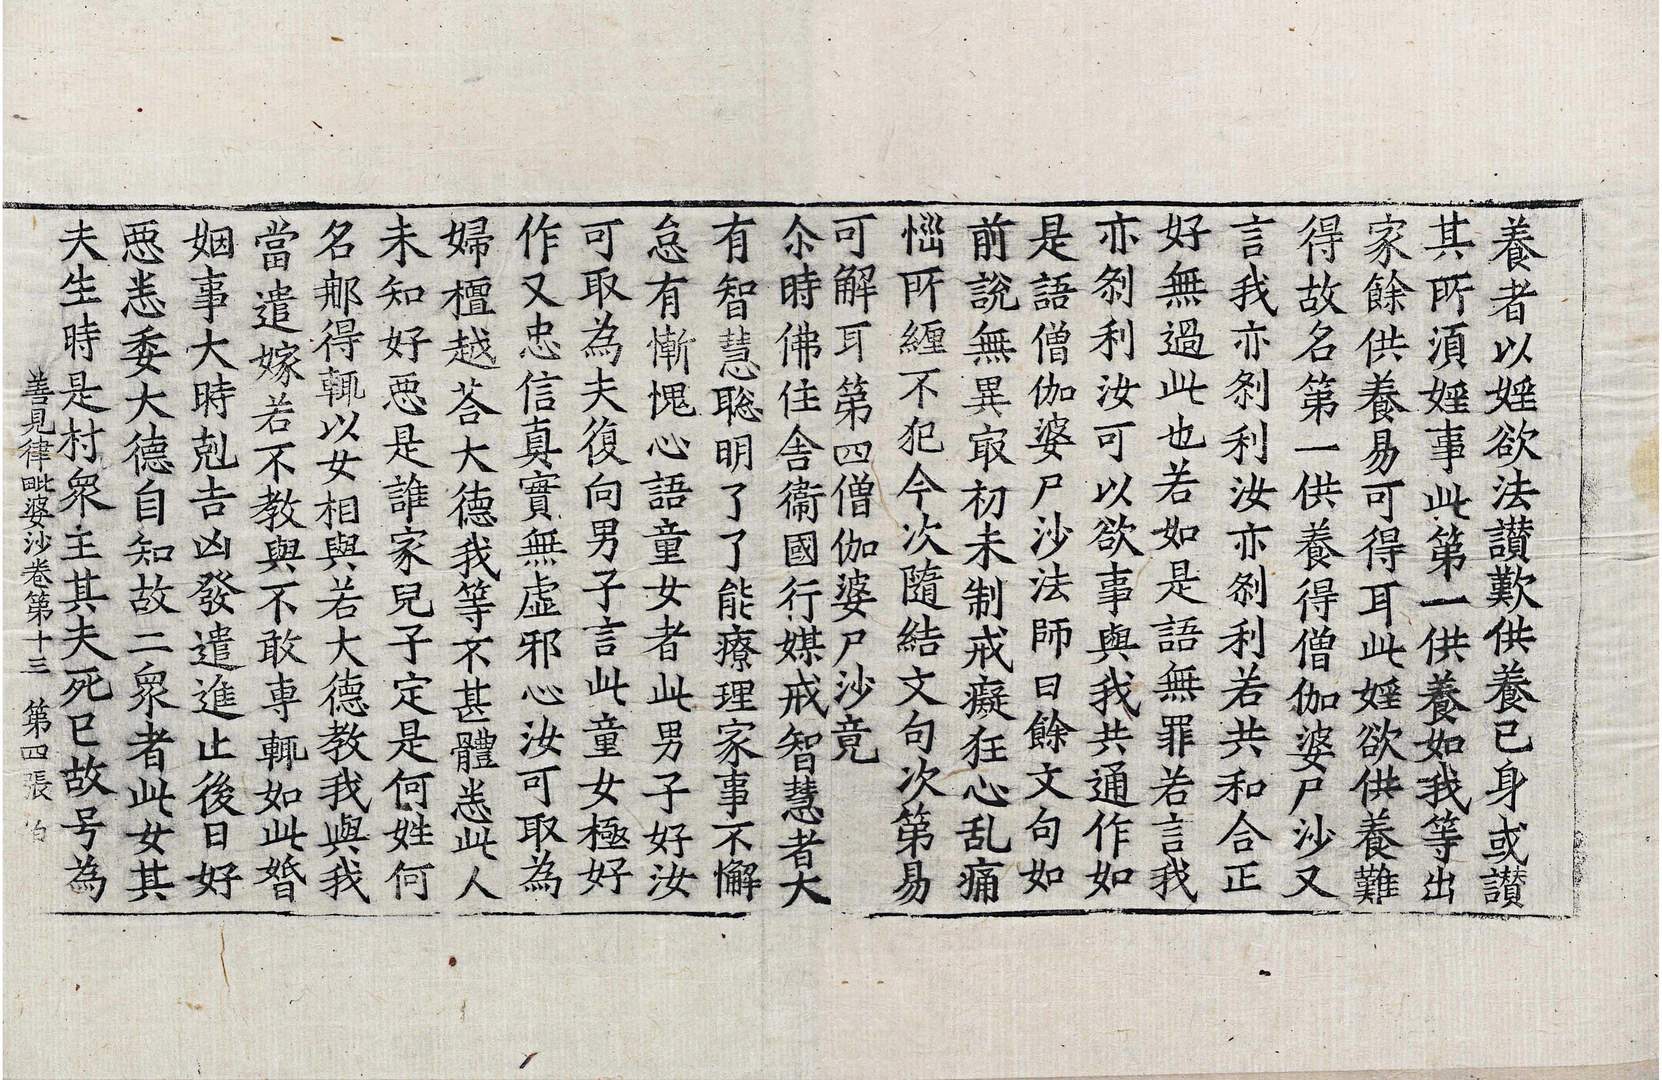 養者以婬欲法讃歎供養已身或讃
其所湏婬事此第一供養如我等出
家餘供養易可得耳此婬欲供養難
得故名第一供養得僧伽婆尸沙又
言我亦刹利汝亦刹利若共和合正
好無過此也若如是語無罪若言我
亦刹利汝可以欲事與我共通作如
是語僧伽婆尸沙法師曰餘文句如
前說無異㝡初未制戒癡狂心乱痛
惱所纏不犯今次隨結文句次第易
可解耳第四僧伽婆尸沙竟
尒時佛住舎衞國行媒戒智慧者大
有智慧聡明了了能療理家事不懈
怠有慚愧心語童女者此男子好汝
可取為夫復向男子言此童女極好
作又忠信真實無虛邪心汝可取為
婦檀越荅大德我等不甚體悉此人
未知好惡是誰家兒子定是何姓何
名那得輒以女相與若大德教我與我
當遣嫁若不教與不敢専輒如此婚
姻事大時尅吉凶發遣進止後日好
惡悉委大德自知故二衆者此女其
夫生時是村衆主其夫死已故号為
善見律毗婆沙卷第十三　第四張　伯